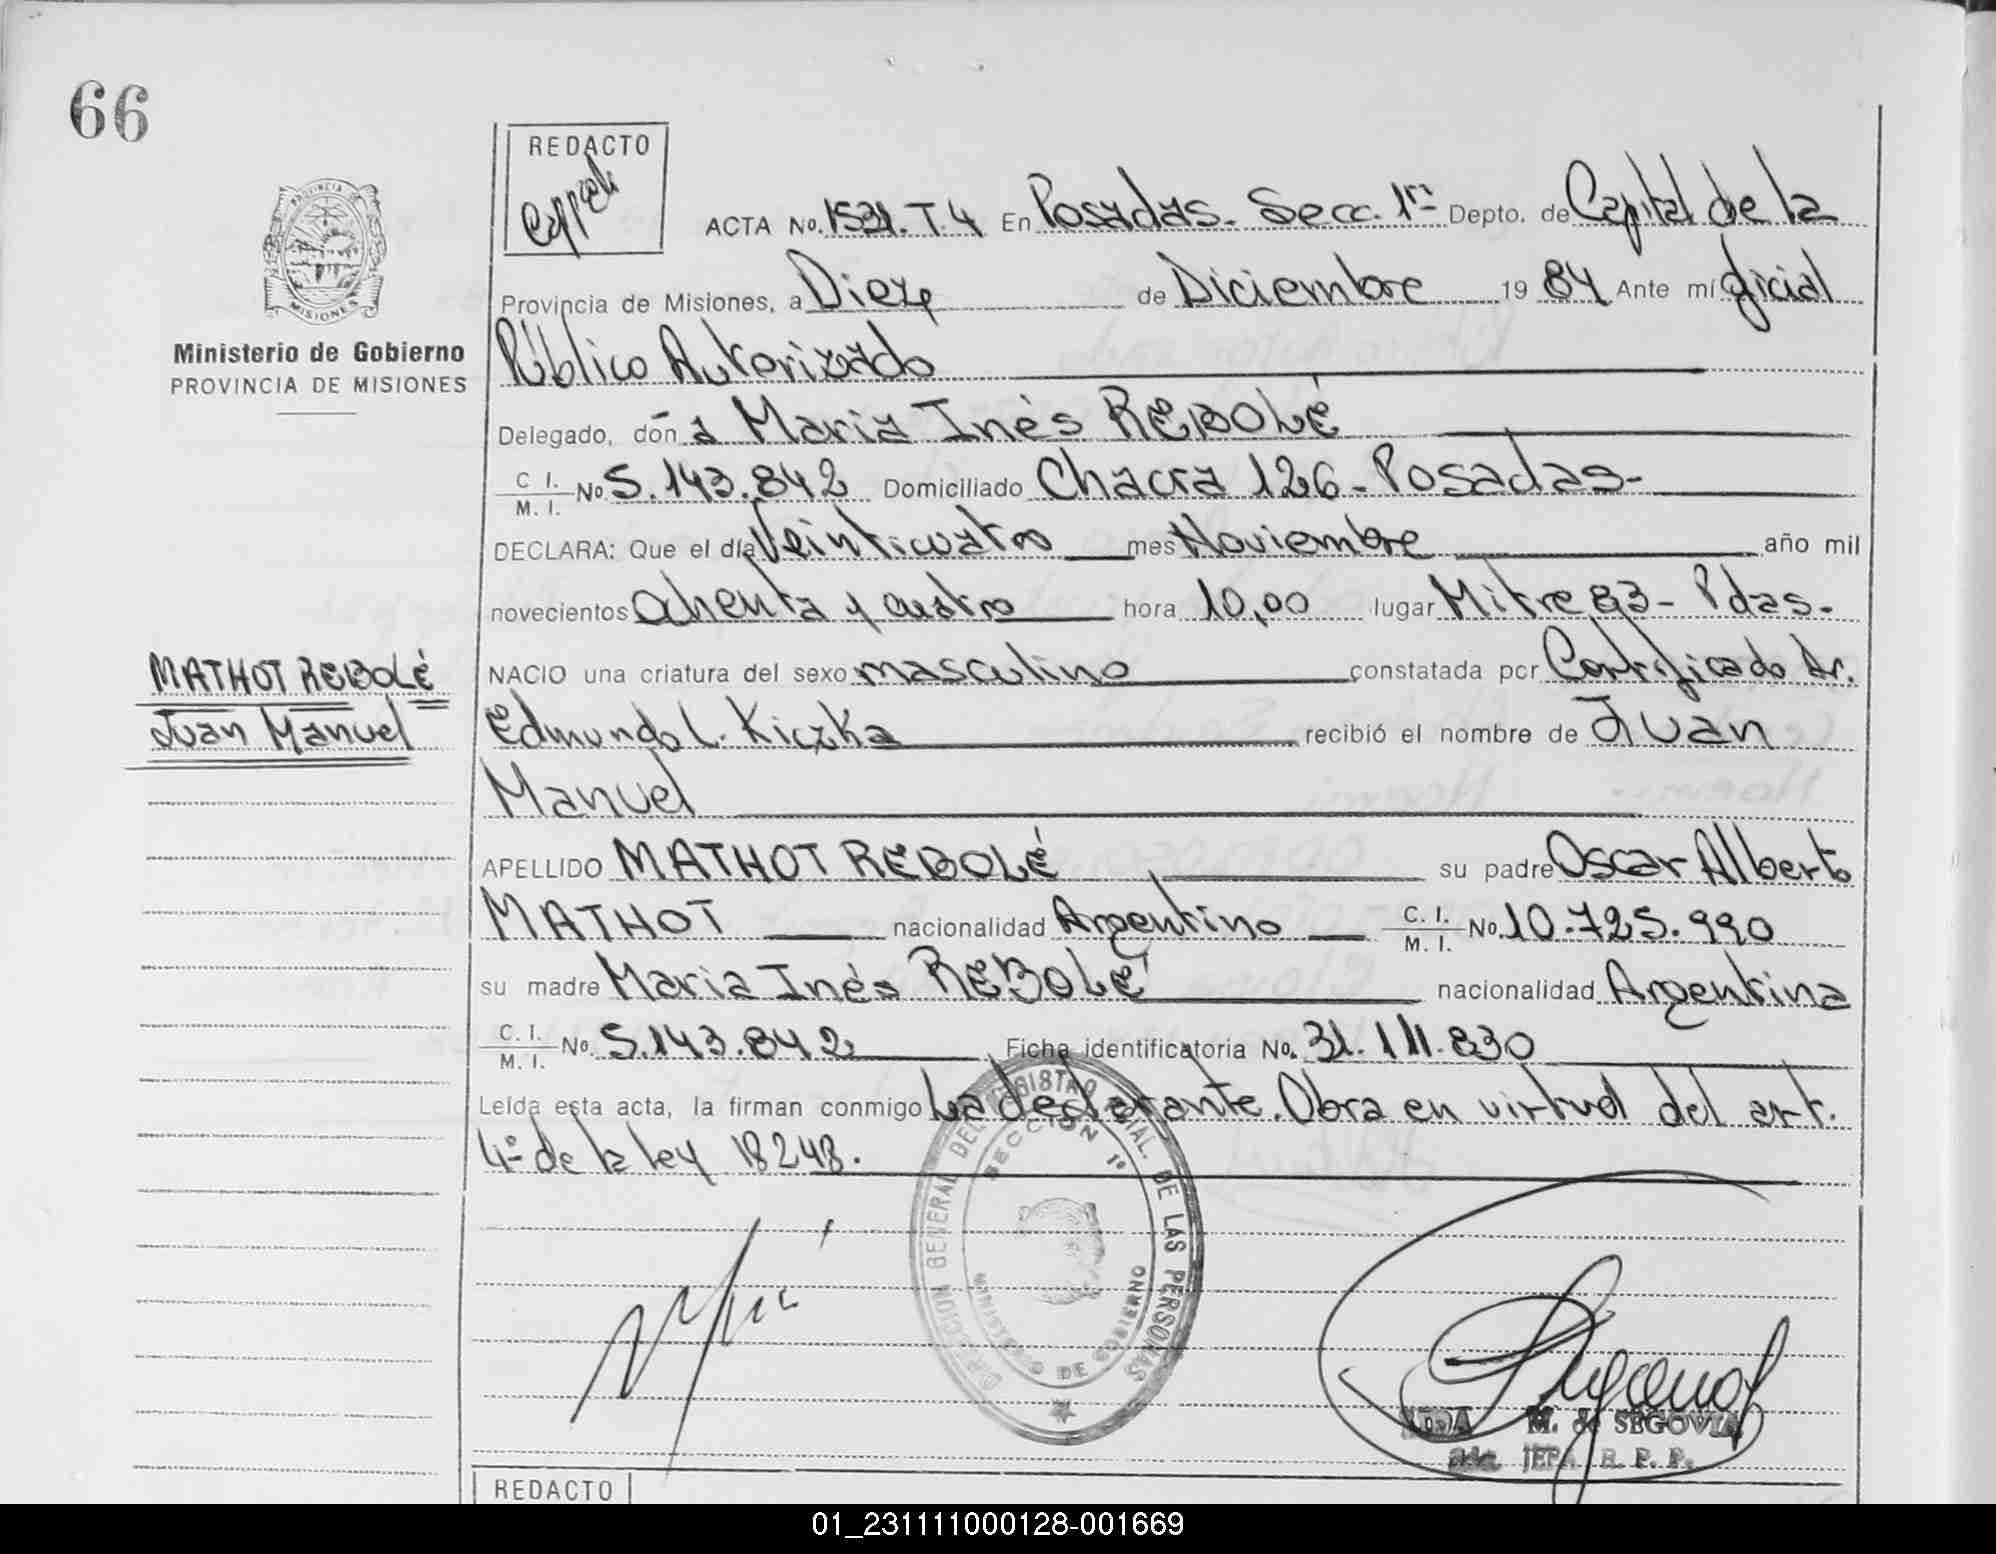 66
REDACTO
ACTA No. 1531. T. 4 En Posadas. Secc. 1ra Depto. de Capital de la
Provincia de Misiones, a Diez de Diciembre 19 84 Ante mí oficial
Ministerio de Gobierno
PROVINCIA DE MISIONES
Público Autorizado
Delegado, don a Maria Inés REBOLÉ
C. I. M. I. No 5.143.842 Domiciliado Chacra 126 - Posadas -
DECLARA: Que el día Veinticuatro mes Noviembre año mil
novecientos ochenta y cuatro hora 10,00 lugar Mitre 83 - Pdas.
NACIO una criatura del sexo masculino constatada por Certificado dr.
MATHOT REBOLÉ
Juan Manuel
Edmundo L. Kiczka recibió el nombre de Juan
Manuel
APELLIDO MATHOT REBOLÉ su padre Oscar Alberto
MATHOT nacionalidad Argentino C. I. M. I. No. 10.725.990
su madre Maria Inés REBOLÉ nacionalidad Argentina
C. I. M. I. No. 5.143.842 Ficha identificatoria No. 31.111.830
Leída esta acta, la firman conmigo La declarante. Obra en virtud del art.
4º de la ley 18248.
DIRECCION GENERAL DEL REGISTRO PCIAL. DE LAS PERSONAS
SECCION 1º
MINISTERIO DE GOBIERNO
M. de SEGOVIA
2da. JEFA R. P. P.
REDACTO
01_231111000128-001669